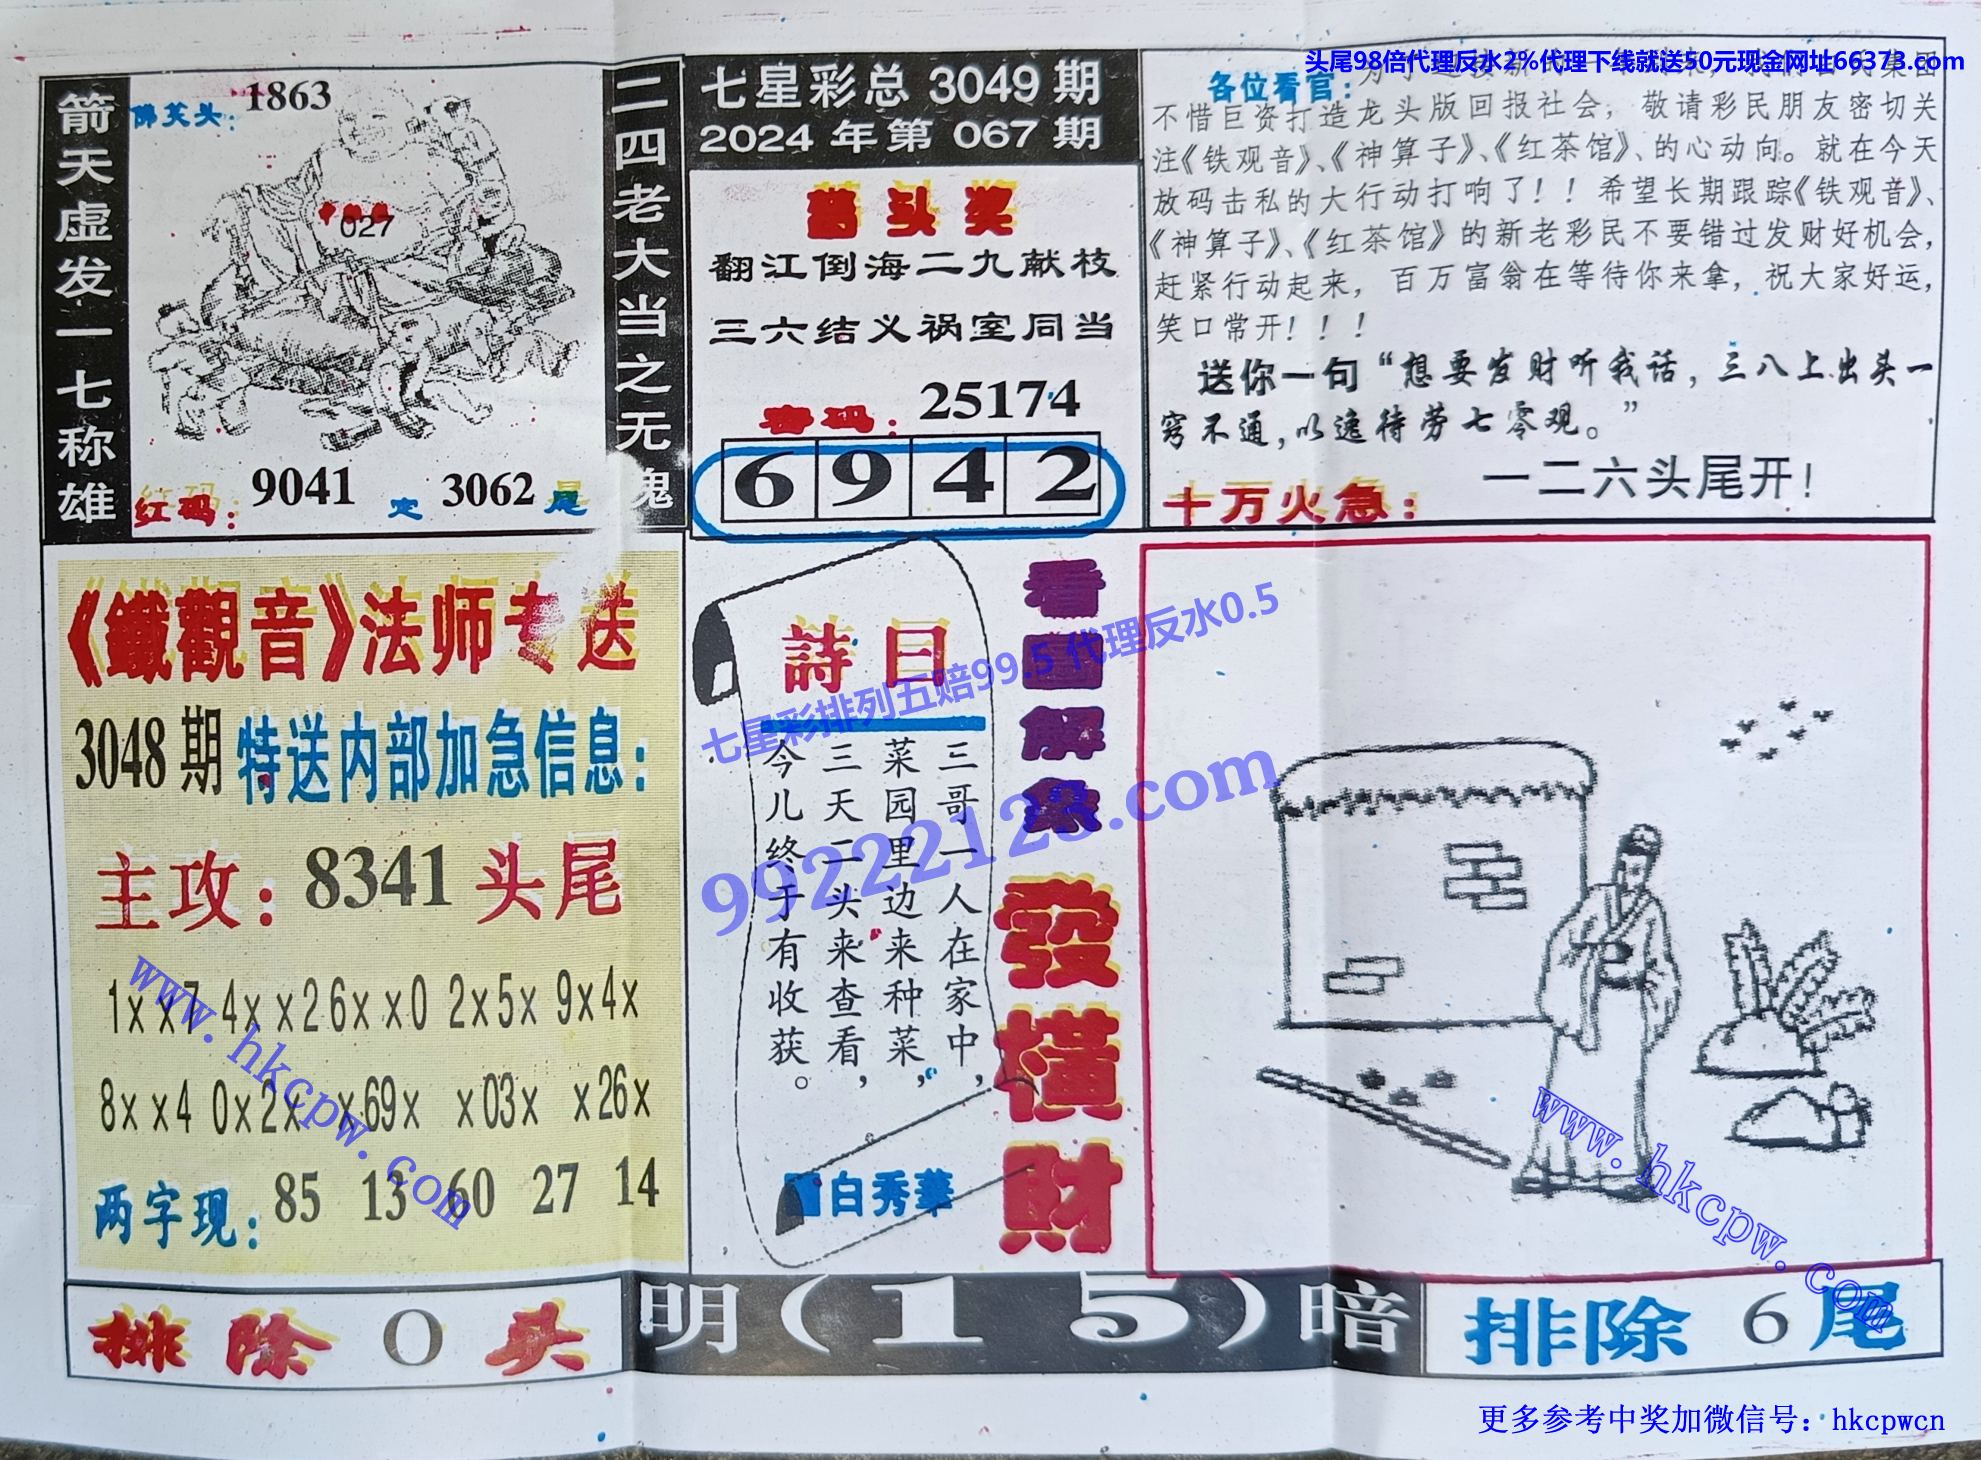 头尾98倍代理反水2%代理下线就送50元现金网址66373.com
箭天虚发一七称雄
佛笑头：1863
中 027
红码：9041 定 3062 尾
二四老大当之无鬼
七星彩总 3049 期
2024 年第 067 期
头奖
翻江倒海二九献枝
三六结义祸室同当
密码：25174
6 9 4 2
各位看官：
集团
不惜巨资打造龙头版回报社会；敬请彩民朋友密切关
注《铁观音》、《神算子》、《红茶馆》、的心动向。就在今天
放码击私的大行动打响了！！希望长期跟踪《铁观音》、
《神算子》、《红茶馆》的新老彩民不要错过发财好机会，
赶紧行动起来，百万富翁在等待你来拿，祝大家好运，
笑口常开！！！
送你一句“想要发财听我话，三八上出头一
窍不通，以逸待劳七零观。”
十万火急：一二六头尾开！
《鐵觀音》法师专送
3048 期 特送内部加急信息：
主攻：8341 头尾
1××7 4××2 6××0 2×5× 9×4×
8××4 0×2× ×69× ×03× ×26×
两字现：85 13 60 27 14
詩曰
三哥一人在家中，
菜园里边来种菜，
三天二头来查看，
今儿终于有收获。
白秀華
看圖解象
發橫財
七星彩排列五赔99.5 代理反水0.5
99222123.com
www.hkcpw.com
www.hkcpw.com
排除 0 头
明(1 5)暗
排除 6 尾
更多参考中奖加微信号：hkcpwcn